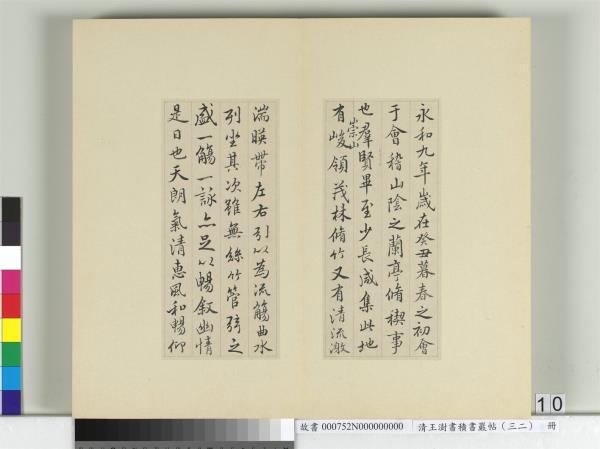 永和九年歲在癸丑暮春之初會
于會稽山陰之蘭亭脩禊事
也羣賢畢至少長咸集此地
有崇山峻領茂林脩竹又有清流激
湍暎帶左右引以為流觴曲水
列坐其次雖無絲竹管弦之
盛一觴一詠亦足以暢敘幽情
是日也天朗氣清惠風和暢仰
10
故書 000752N000000000 清王澍書積書巖帖(三二) 冊